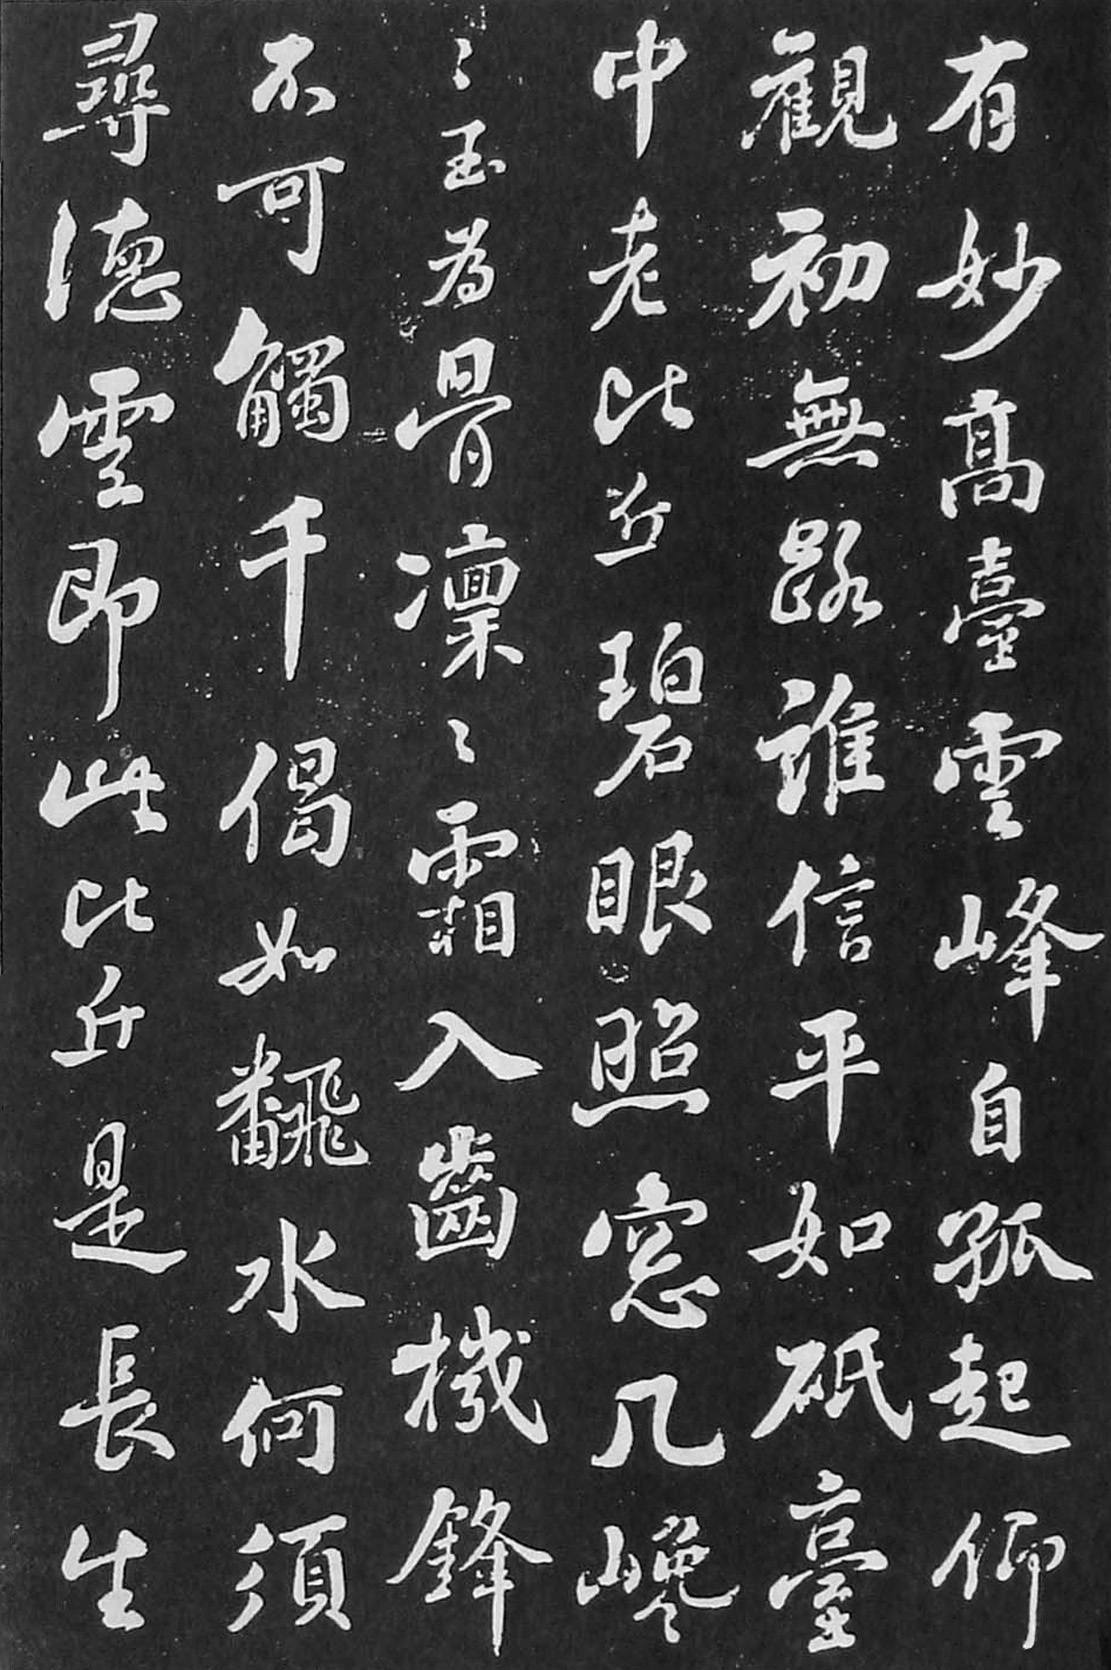 有妙高臺雲峰自孤起仰
觀初無路誰信平如砥臺
中老比丘碧眼照窓几巉
〻玉為骨凜〻霜入齒機鋒
不可觸千偈如飜水何須
尋德雲即此比丘是長生